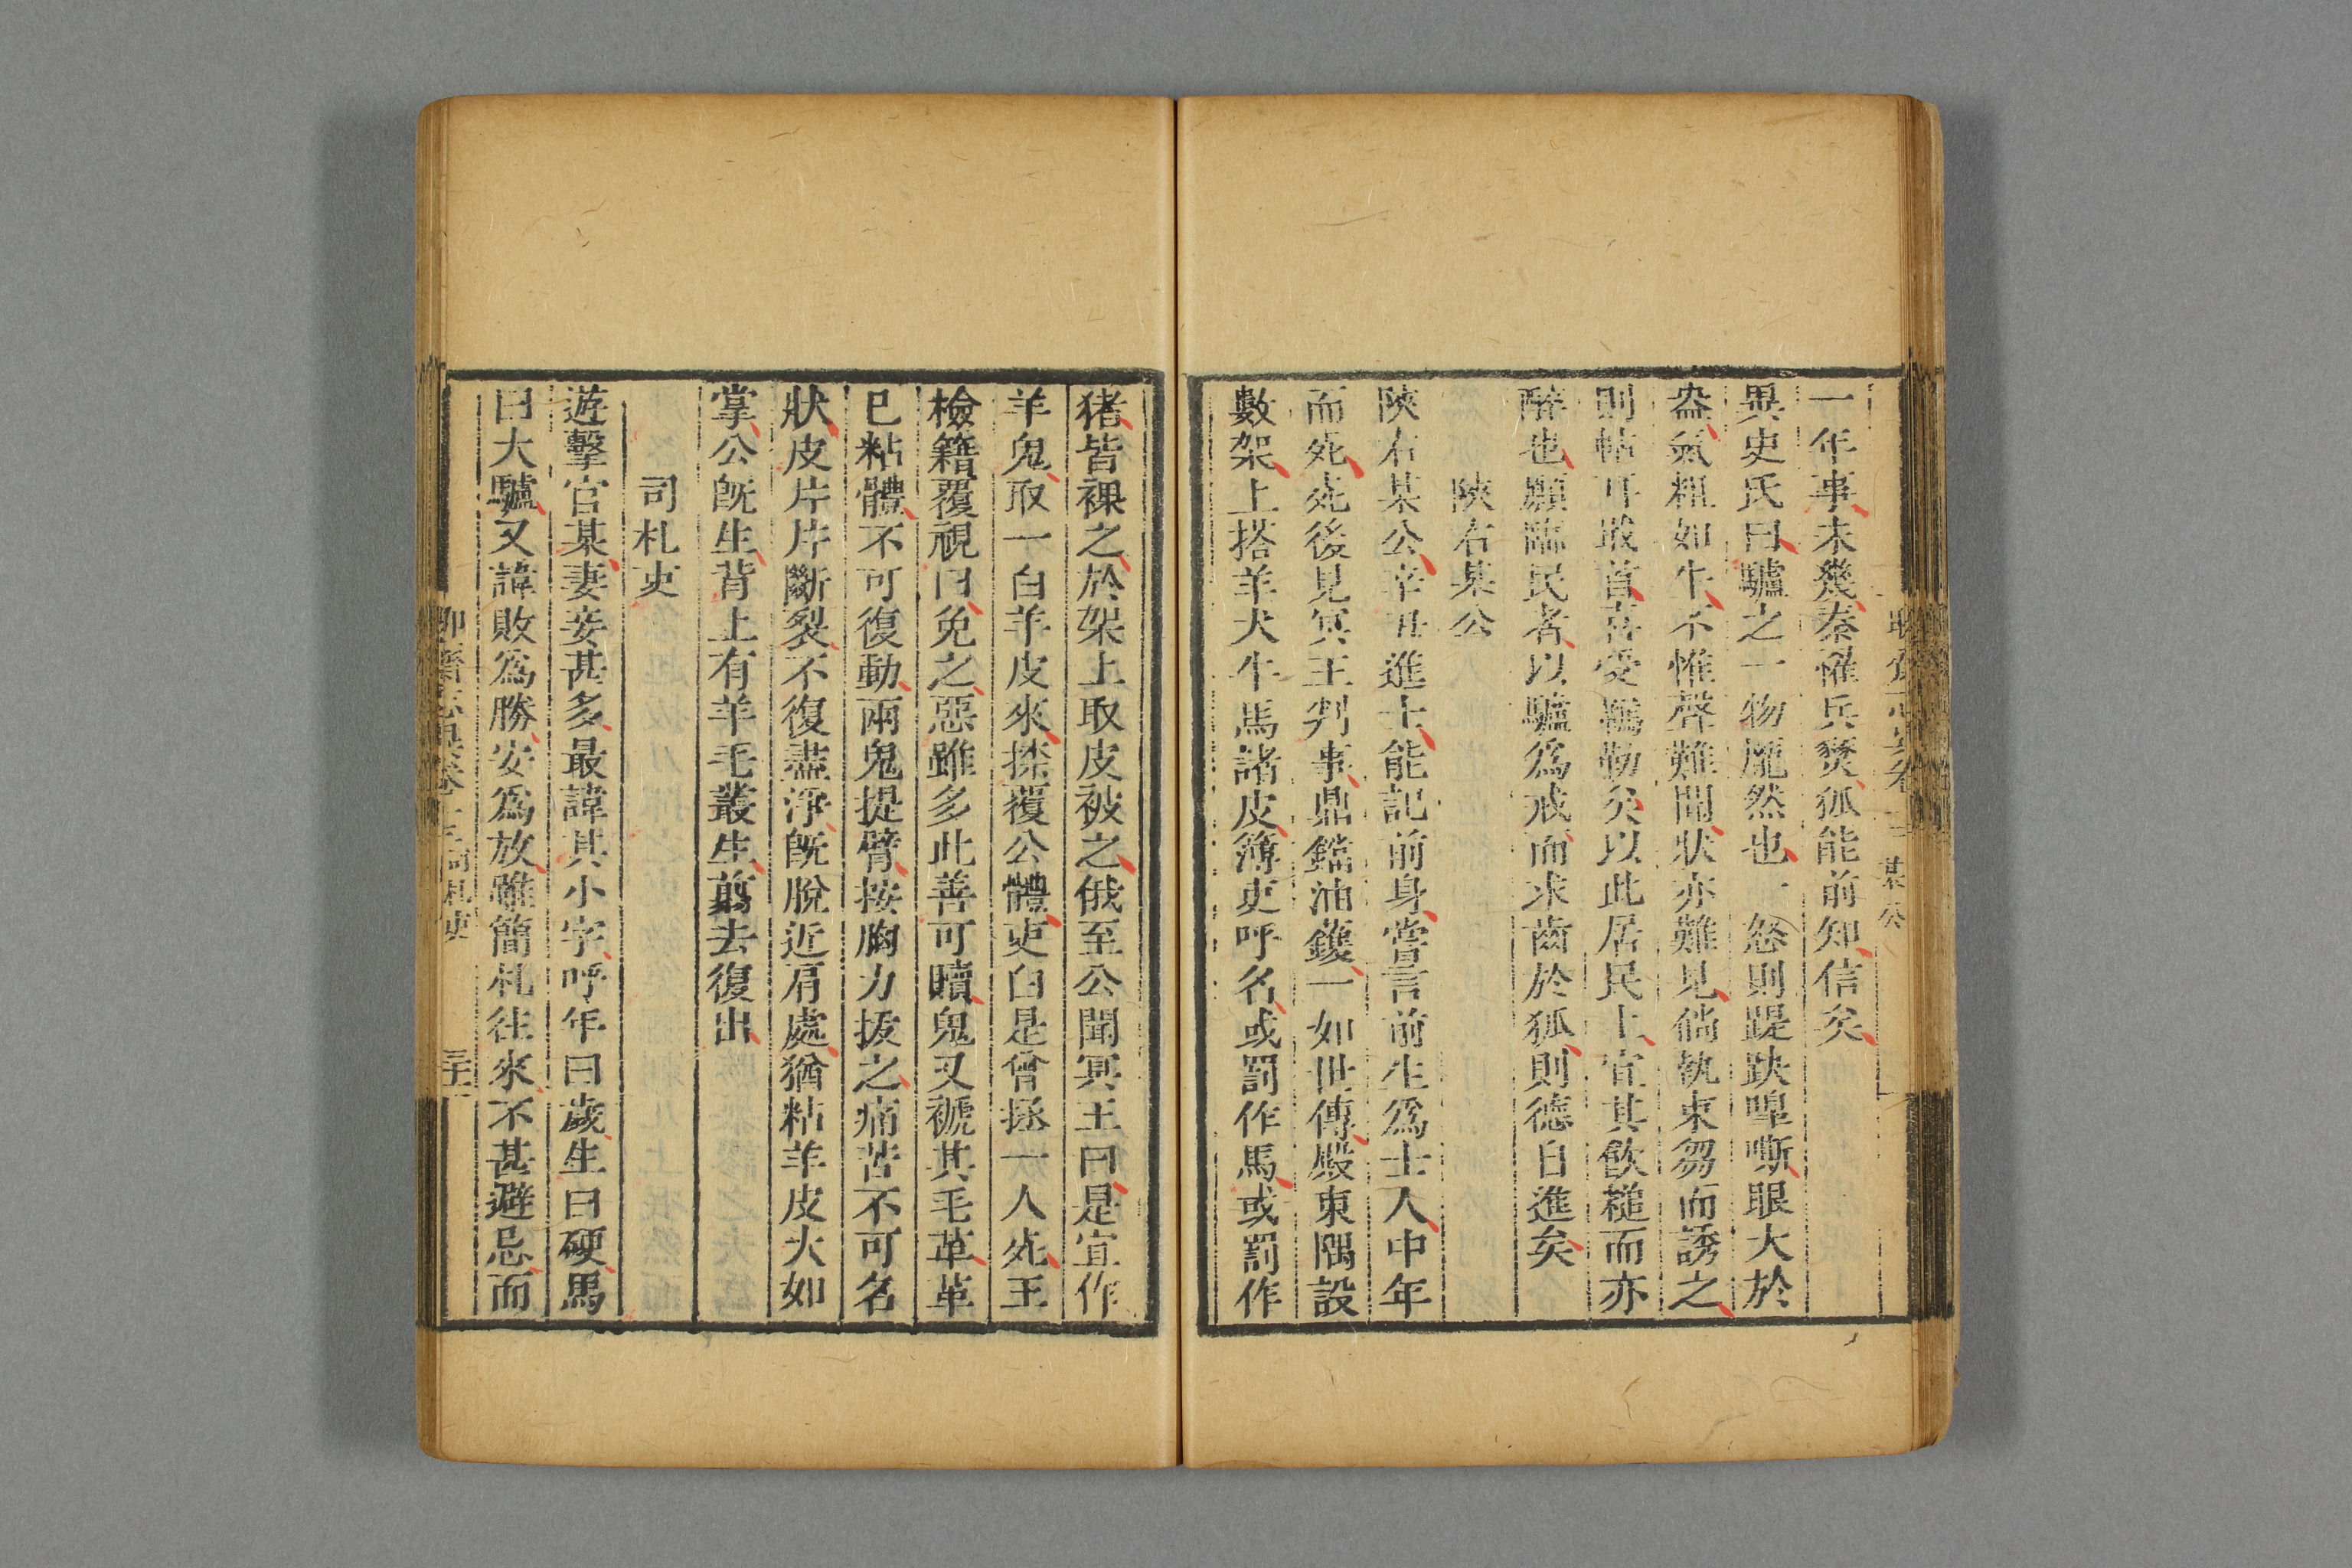 一年事未幾秦罹兵燹狐能前知信矣
異史氏曰驢之一物龐然也一怒則踶趹嘷嘶眼大於
盎氣粗如牛不惟聲難聞狀亦難見倘執束芻而誘之
則帖耳戢首喜受羈勒矣以此居民上宜其飲䭔而亦
醉也願臨民者以驢為戒而求齒於狐則德日進矣
陝右某公
陝右某公辛丑進士能記前身嘗言前生為士人中年
而死死後見冥王判事鼎鐺油鑊一如世傳殿東隅設
數架上搭羊犬牛馬諸皮簿吏呼名或罰作馬或罰作
猪皆裸之於架上取皮被之俄至公聞冥王曰是宜作
羊鬼取一白羊皮來捺覆公體吏白是曾拯一人死王
檢籍覆視曰免之惡雖多此善可贖鬼又褫其毛革革
已粘體不可復動兩鬼捉臂按胸力拔之痛苦不可名
狀皮片片斷裂不復盡淨既脫近肩處猶粘羊皮大如
掌公既生背上有羊毛叢生剪去復出
司札吏
遊擊官某妻妾甚多最諱其小字呼年曰歲生曰硬馬
曰大驢又諱敗為勝安為放雖簡札往來不甚避忌而